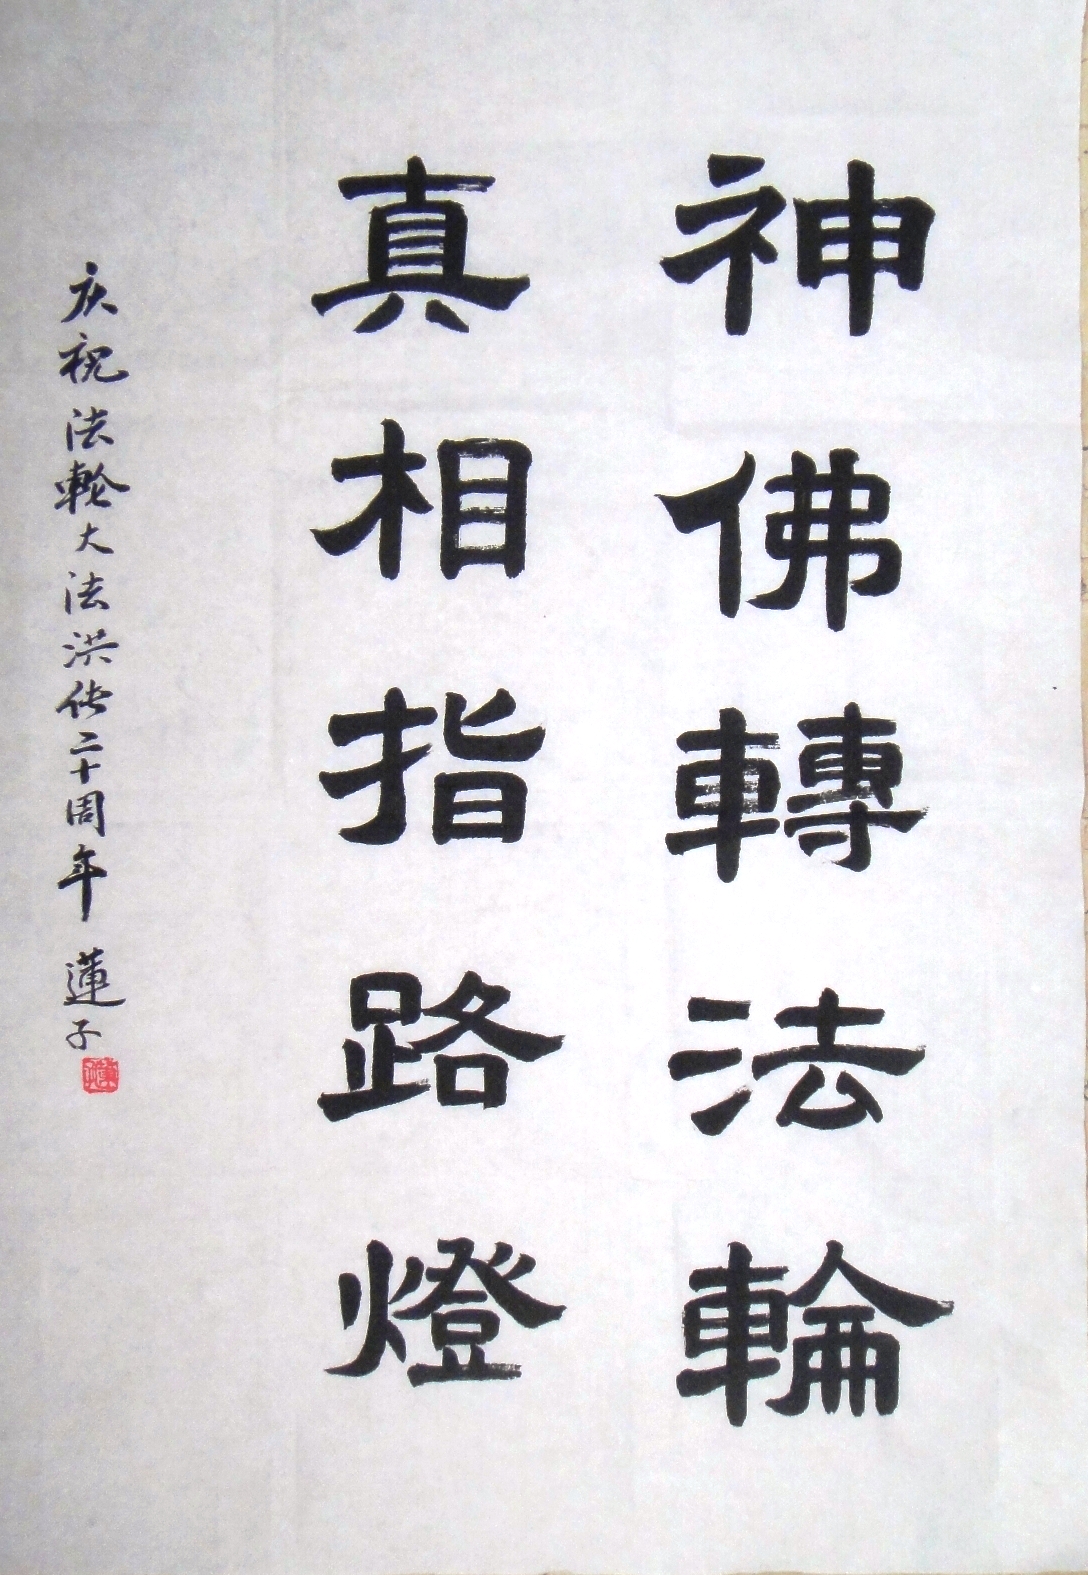 神佛轉法輪
真相指路燈
庆祝法輪大法洪传二十周年 蓮子